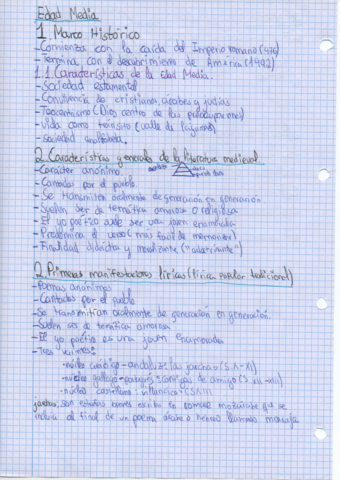 Edad Media
1. Marco Histórico
-Comienza con la caída del Imperio romano (476)
-Termina con el descubrimiento de América (1492)
1.1 Características de la Edad Media.
-Sociedad estamental
-Convivencia de cristianos, árabes y judías
-Teocentrismo (Dios centro de las preocupaciones)
-Vida como tránsito (valle de lágrimas)
-Sociedad analfabeta.
2. Características generales de la literatura medieval
-Carácter anónimo.
-Cantadas por el pueblo.
-Se transmiten oralmente de generación en generación
-Suelen ser de temática amorosa o religiosa
-El yo poético suele ser una joven enamorada
-Predomina el verso (más fácil de memorizar)
-Finalidad didáctica y moralizante
2. Primeras manifestaciones líricas (lírica popular tradicional)
-Poemas anónimos
-Cantados por el pueblo
-Se transmitían oralmente de generación en generación.
-Suelen ser de temática amorosa
-El yo poético es una joven enamorada
-Tres
-núcleo -andaluz: las jarchas (S.X-XI)
-núcleo gallego-portugués: cantigas de amigo (S.XII-XIII)
-núcleo castellano: villancicos
jarchas: son estrofas breves escritas en romance mozárabe que se
incluía al final de un poema